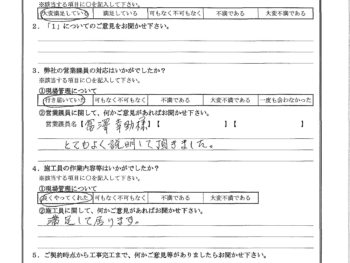 ※該当する項目に○を記入して下さい。
大変満足している 満足している 可もなく不可もなく 不満である 大変不満である
2．「1」についてのご意見をお聞かせ下さい。
3．弊社の営業議員の対応はいかがでしたか？
※該当する項目に○を記入して下さい。
①現場管理について
行き届いていた 可もなく不可もなく 不満である 大変不満である 一度も会わなかった
②営業議員に関して、何かご意見があればお聞かせ下さい。
営業議員名【 富澤幸助様 】【 】【 】
とてもよく説明して頂きました。
4．施工員の作業内容等はいかがでしたか？
※該当する項目に○を記入して下さい。
①現場管理について
良くやってくれた 可もなく不可もなく 不満である 大変不満である
②施工員に関して、何かご意見があればお聞かせ下さい。
満足して居ります。
5．ご契約時点から工事完工まで、何かご意見等がありましたらお聞かせ下さい。